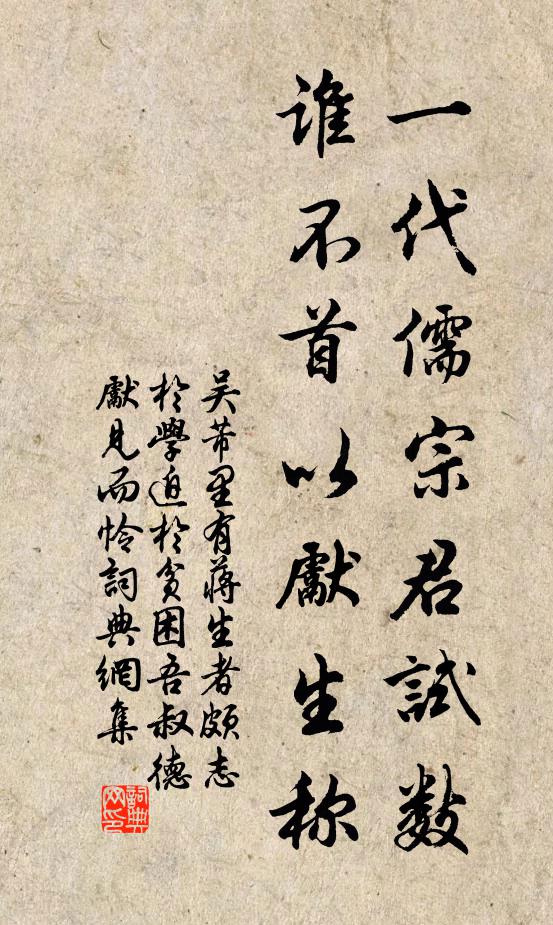 一代儒宗君試数
誰不首以獻生称
吴芾里有蔣生者頗志
於學迫於貧困吾叔德
獻見而怜詞典網集
詞典网印